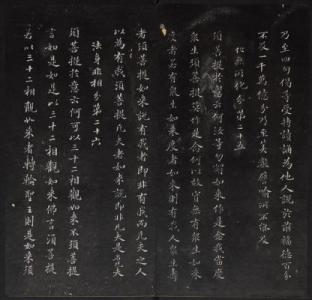 乃至四句偈等受持讀誦為他人說於前福德百分
不及一百千萬億分乃至算數譬喻所不能及
化無所化分第二十五
須菩提於意云何汝等勿謂如來作是念我當度
眾生須菩提莫作是念何以故實無有眾生如來
度者若有眾生如來度者如來則有我人眾生壽
者須菩提如來說有我者即非有我而凡夫之人
以為有我須菩提凡夫者如來說即非凡夫是名凡夫
法身非相分第二十六
須菩提於意云何可以三十二相觀如來不須菩提
言如是如是以三十二相觀如來佛言須菩提
若以三十二相觀如來者轉輪聖王則是如來須